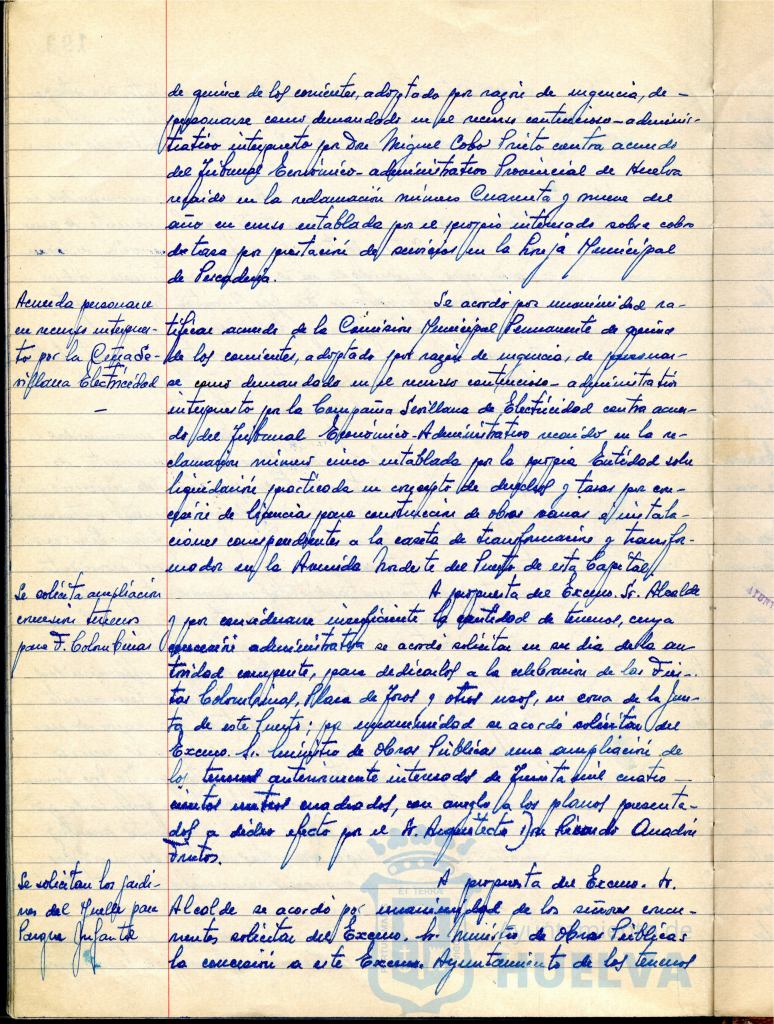 de quince de los corrientes, adoptado por razón de urgencia, de
personarse como demandado en el recurso contencioso-adminis-
trativo interpuesto por Don Miguel Cobo Prieto contra acuerdo
del Tribunal Económico-administrativo Provincial de Huelva
recaido en la reclamación número Cuarenta y nueve del
año en curso entablada por el propio interesado sobre cobro
de tasa por prestación de servicios en la Lonja Municipal
de Pescadería.
Acuerda personarse
en recurso interpues-
to por la Cmpañía Se-
villana Electricidad
Se acordó por unanimidad ra-
tificar acuerdo de la Comisión Municipal Permanente de quince
de los corrientes, adoptado por razón de urgencia, de personar-
se como demandado en el recurso contencioso-administrativo
interpuesto por la Compañía Sevillana de Electricidad contra acuer-
do del Tribunal Económico-Administrativo recaído en la re-
clamación número cinco entablada por la propia Entidad sobre
liquidación practicada en concepto de derechos y tasas por con-
cesión de licencias para construcción de obras varias e instala-
ciones correspondientes a la caseta de transformación y transfor-
mador en la Avenida Nordeste del Puerto de esta Capital.
Se solicita ampliación
concesión terrenos
para F. Colombinas
A propuesta del Excmo. Sr. Alcalde
y por considerarse insuficiente la cantidad de terrenos, cuya
concesión administrativa se acordó solicitar en su dia de la au-
toridad competente, para dedicarlos a la celebración de las Fies-
tas Colombinas, Plaza de Toros y otros usos, en zona de la Jun-
ta de este Puerto; por unanimidad se acordó solicitar del
Excmo. Sr. Ministro de Obras Públicas una ampliación de
los terrenos anteriormente interesados de Treinta mil cuatro-
cientos metros cuadrados, con arreglo a los planos presenta-
dos a dicho efecto por el Sr. Arquitecto Don Ricardo Anadón
Frutos.
Se solicitan los jardi-
nes del Muelle para
Parque Infantil
A propuesta del Excmo. Sr.
Alcalde se acordó por unanimidad de los señores concu-
rrentes solicitar del Excmo. Sr. Ministro de Obras Públicas
la concesión a este Excmo. Ayuntamiento de los terrenos
ET TERRÆ
Ayuntamiento de
HUELVA